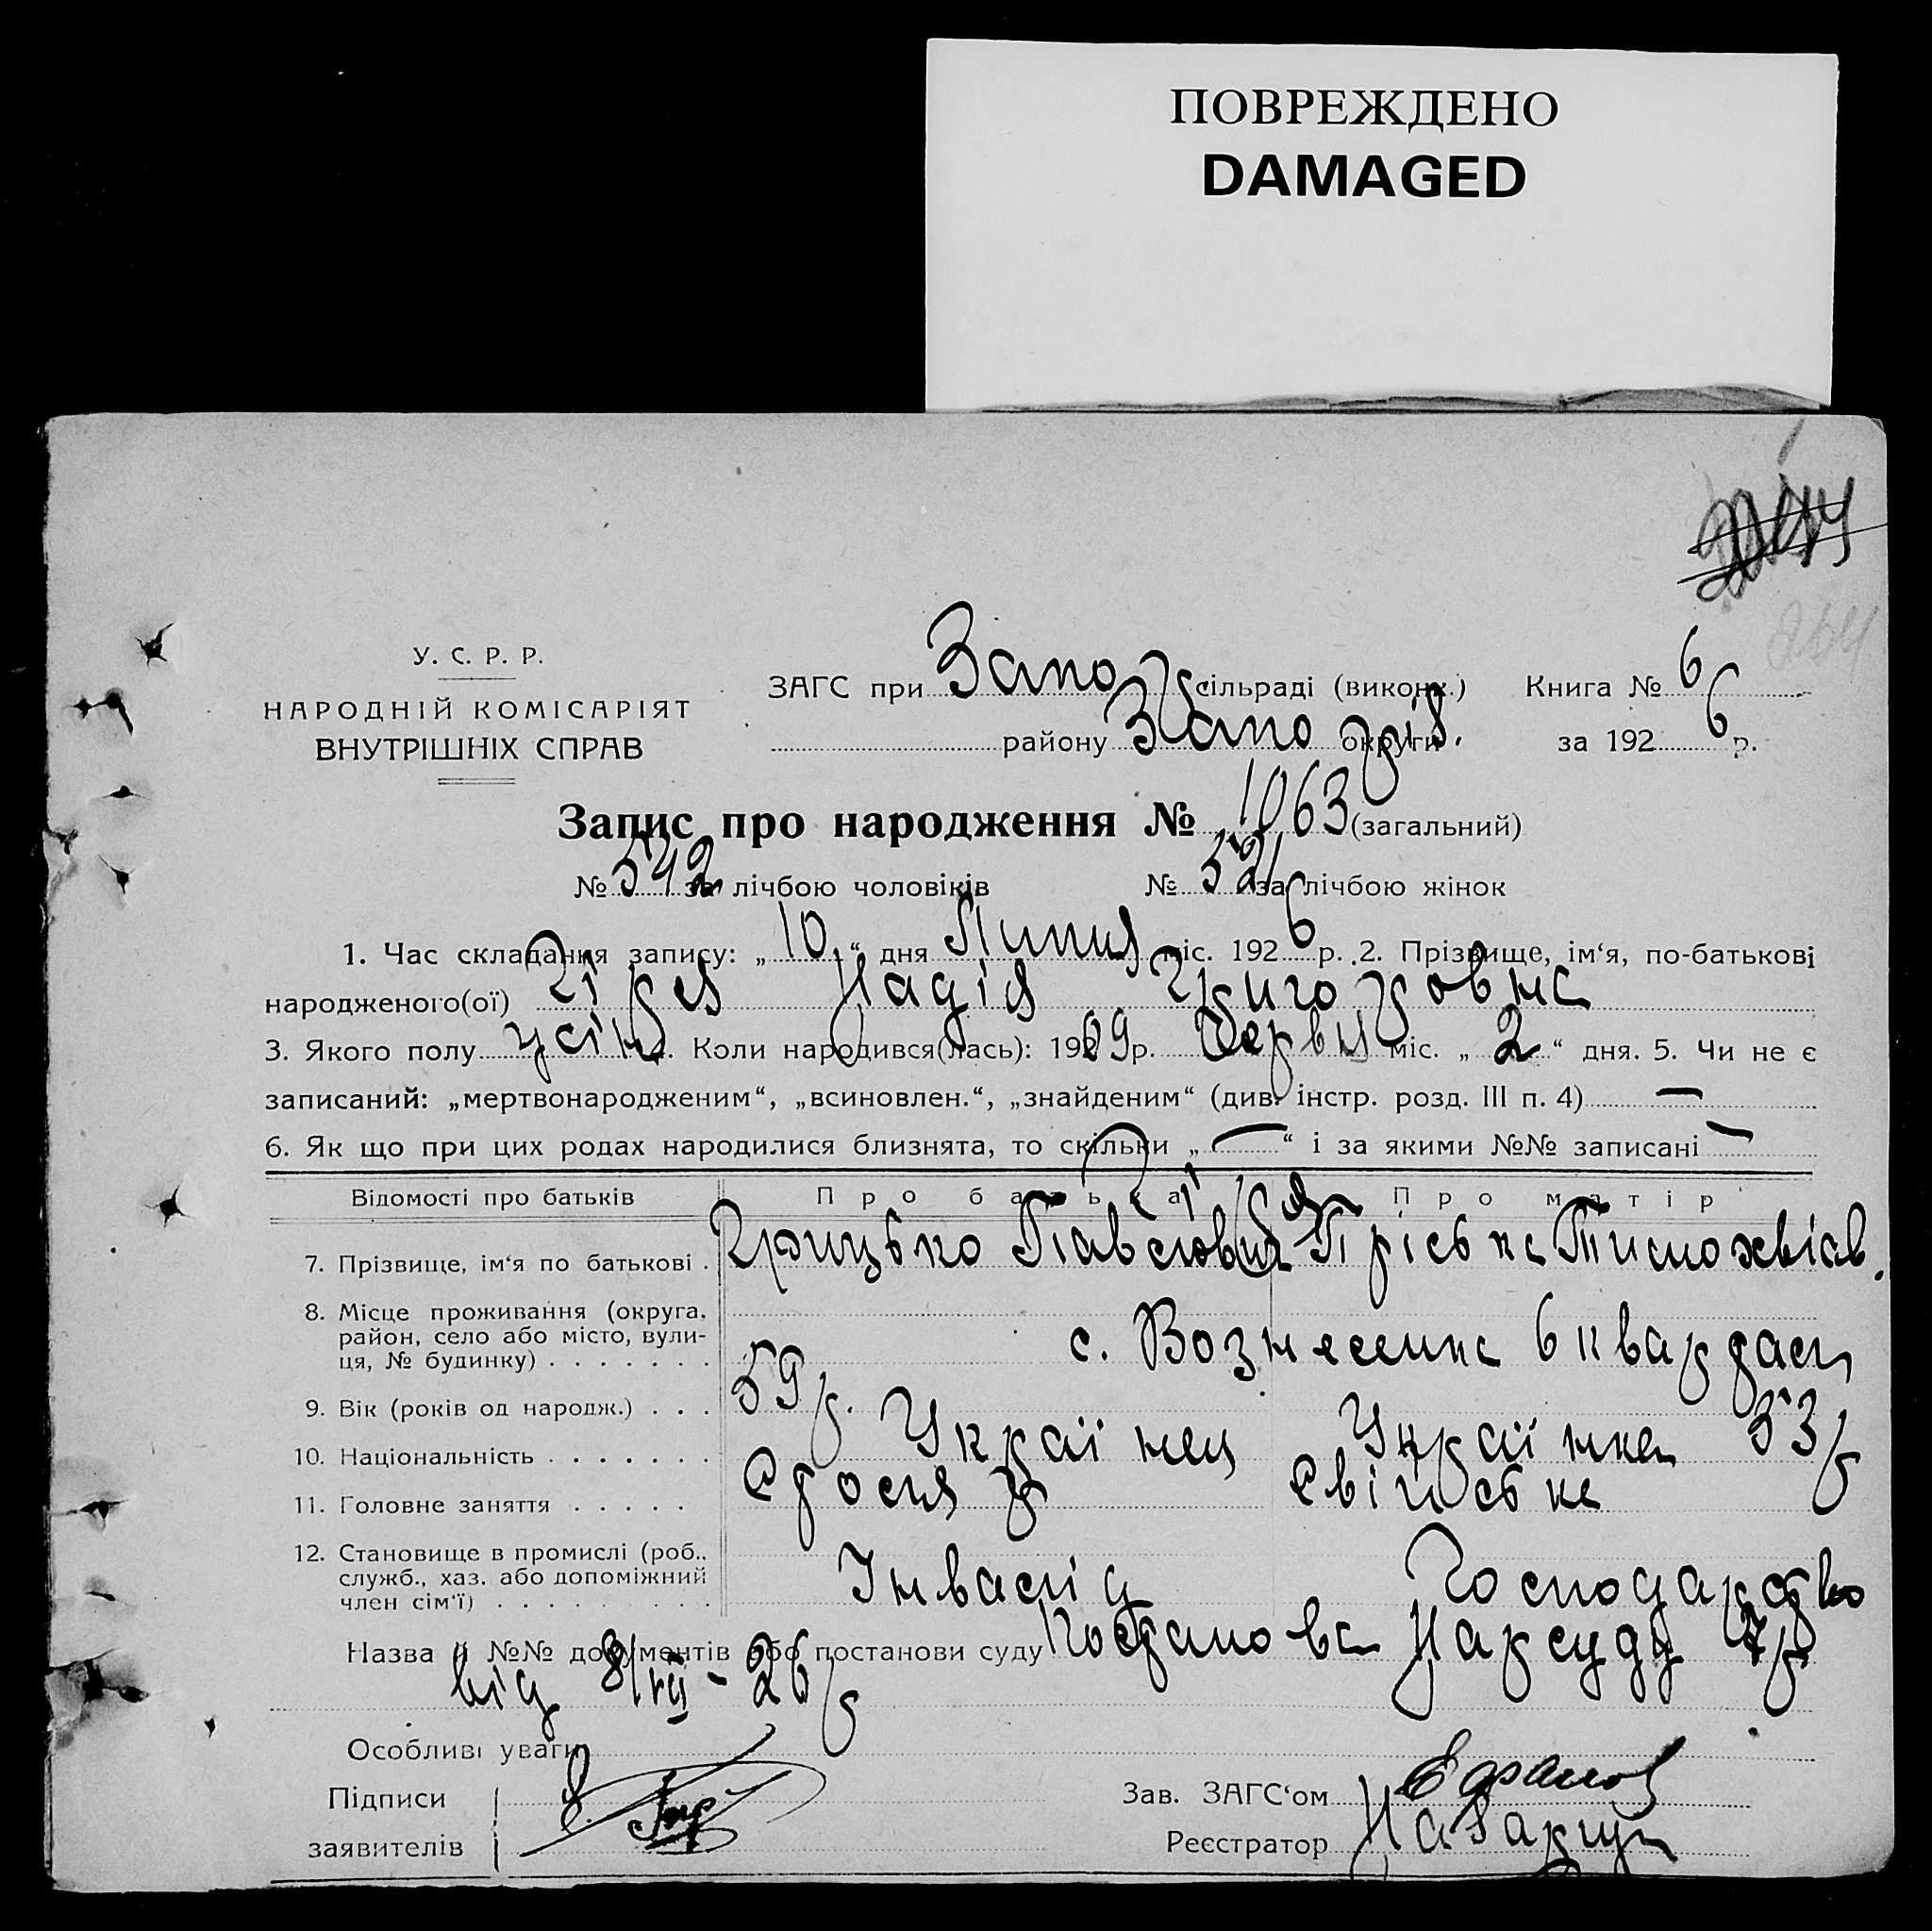 ПОВРЕЖДЕНО
DAMAGED
У. С. Р. Р.
НАРОДНІЙ КОМІСАРІЯТ
ВНУТРІШНІХ СПРАВ
ЗАГС при Запо сільраді (виконк.) Книга № 6
району Запо округи за 1926 р.
Запис про народження № 1063 (загальний)
№ 542 за лічбою чоловіків № 521 за лічбою жінок
1. Час складання запису: „ 10 “ дня Липня міс. 1926 р. 2. Прізвище, ім‘я, по-батькові
народженого(ої) Надія Григоровна
3. Якого полу Коли народився(лась): 1909 р. Червня міс. „ 2 “ дня. 5. Чи не є
записаний: „мертвонародженим“, „всиновлен.“, „знайденим“ (див. інстр. розд. III п. 4) —
6. Як що при цих родах народилися близнята, то скільки „ — “ і за якими №№ записані —
Відомості про батьків Про батька Про матір
7. Прізвище, ім‘я по батькові . Грицько Павлович Пріська Тимохвіїв.
8. Місце проживання (округа,
район, село або місто, вули-
ця, № будинку) . . . . . . . с. Вознесенка 6 квартал
9. Вік (років од народж.) . . . 59 р. 53 р
10. Національність . . . . . . . Українец Українка
11. Головне заняття . . . . . Свійське
12. Становище в промислі (роб.,
служб., хаз. або допоміжний
член сім‘ї) . . . . . . . . . Інвалід Господарство
Назва й №№ документів або постанови суду Постанова Нарсуду
від 8/VII - 26 р
Особливі уваги
Підписи
заявителів
Зав. ЗАГС‘ом
Реєстратор